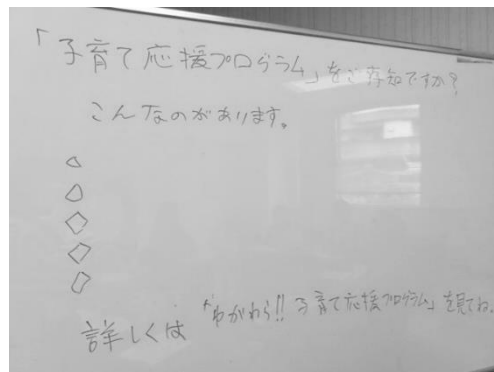 「子育て応援プログラム」をご存知ですか?
こんなのがあります。
◇
◇
◇
◇
◇
詳しくは「わがわら!!子育て応援プログラム」を見てね。